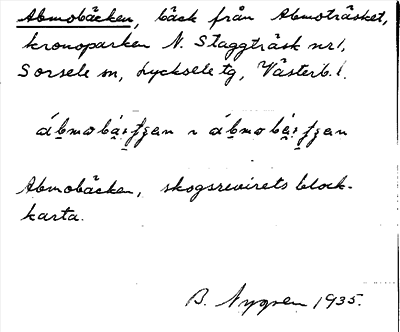 Abmobäcken, bäck från Abmoträsket,
kronoparken N. Staggträsk nr 1,
Sorsele sn, Lycksele tg, Västerb. l.
Abmobäcken, skogsrevirets block-
karta.
B. Nygren 1935.